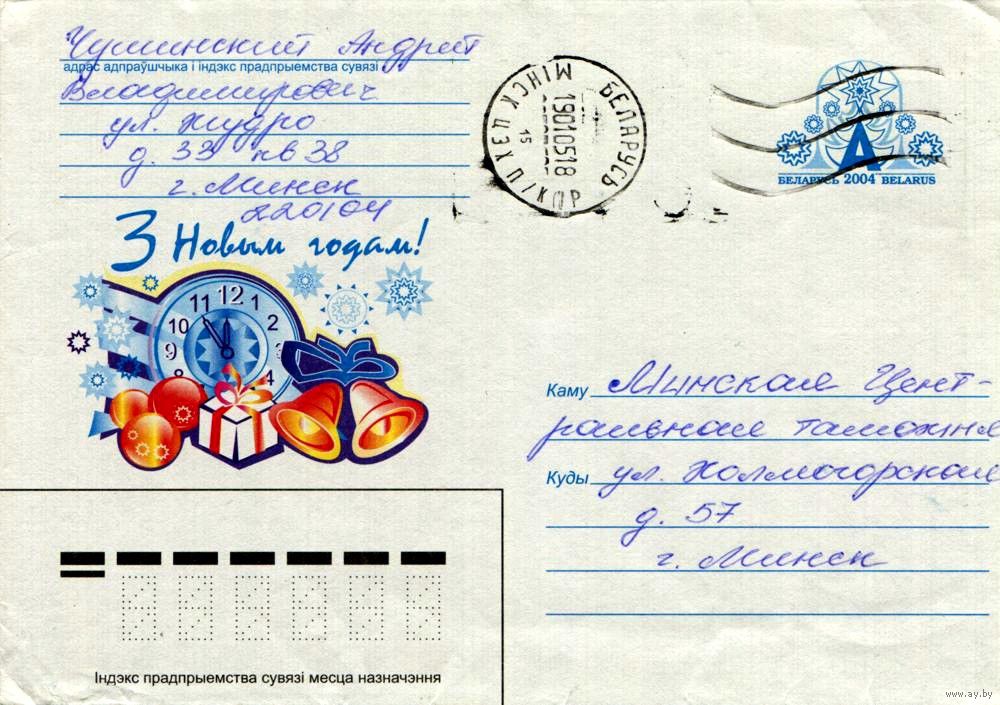 Чушинский Андрей
адрас адпраўшчыка і індэкс прадпрыемства сувязі
Владимирович
ул. Жудро
д. 33 кв 38
г. Минск
220104
БЕЛАРУСЬ
МІНСК ЦЭХ
190105 18
15
А
БЕЛАРУСЬ 2004 BELARUS
З Новым годам!
11 12 1
10 2
9 3
8 4
Каму Минская Цент-
ральная таможня
Куды ул. Холмогорская
д. 57
г. Минск
Індэкс прадпрыемства сувязі месца назначэння
www.ay.by